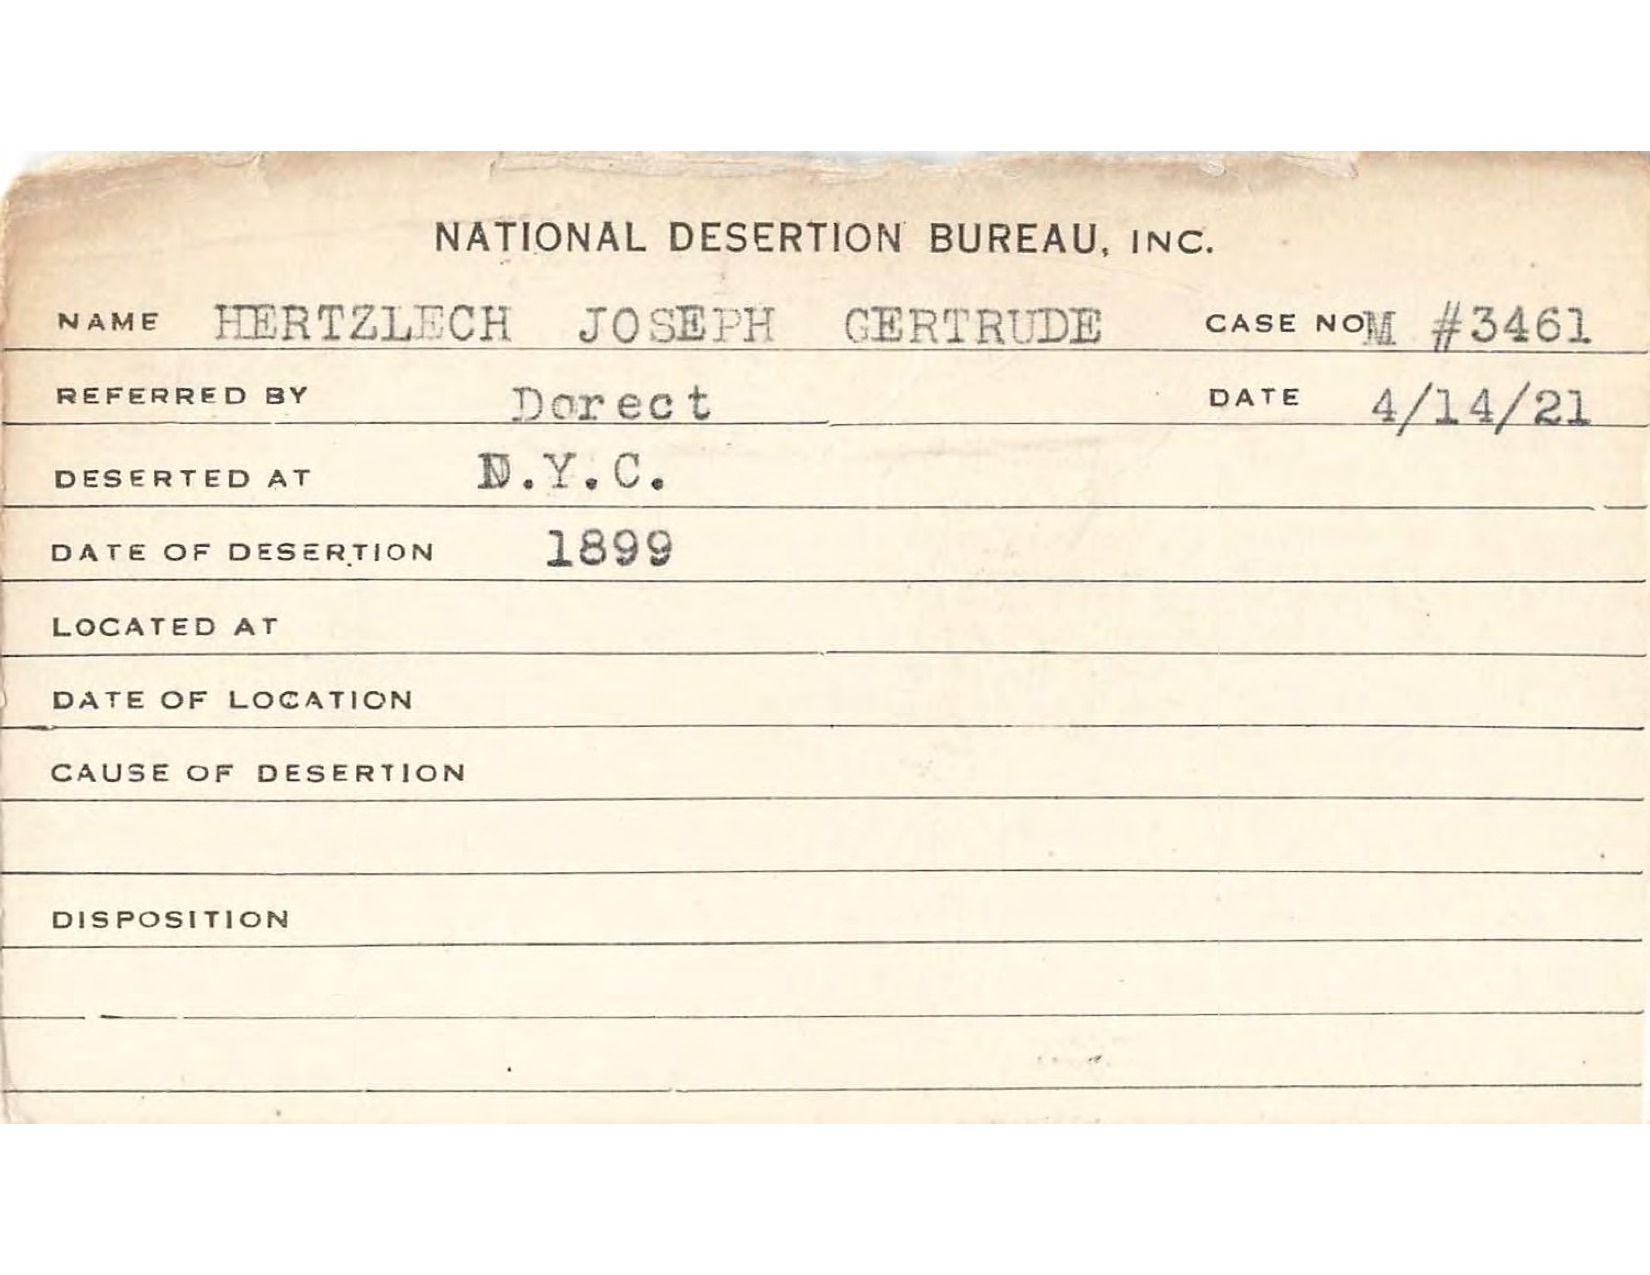 NATIONAL DESERTION BUREAU, INC.
NAME HERTZLECH JOSEPH GERTRUDE CASE NO M #3461
REFERRED BY Dorect DATE 4/14/21
DESERTED AT N.Y.C.
DATE OF DESERTION 1899
LOCATED AT
DATE OF LOCATION
CAUSE OF DESERTION
DISPOSITION